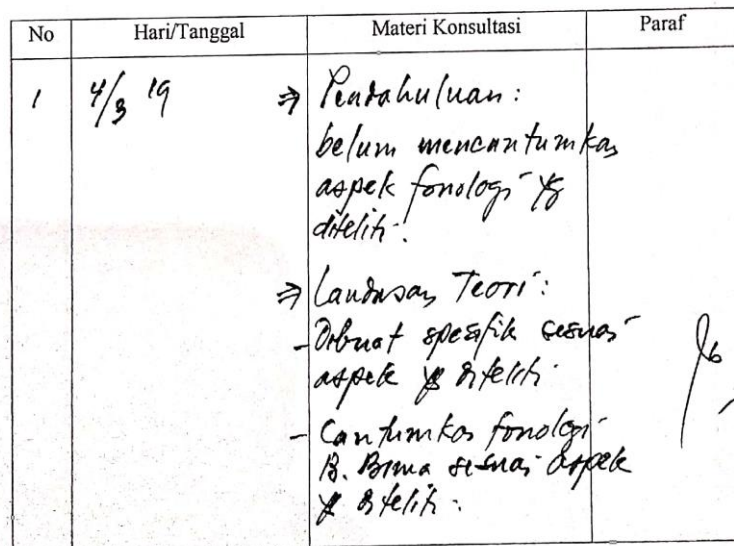 No Hari/Tanggal Materi Konsultasi Paraf
1 4/3 19 ⇒ Pendahuluan :
belum mencantumkan
aspek fonologi yg
diteliti.
⇒ Landasan Teori :
- Dibuat spesifik sesuai
aspek yg diteliti
- Cantumkan fonologi
B. Bima sesuai aspek
yg diteliti.